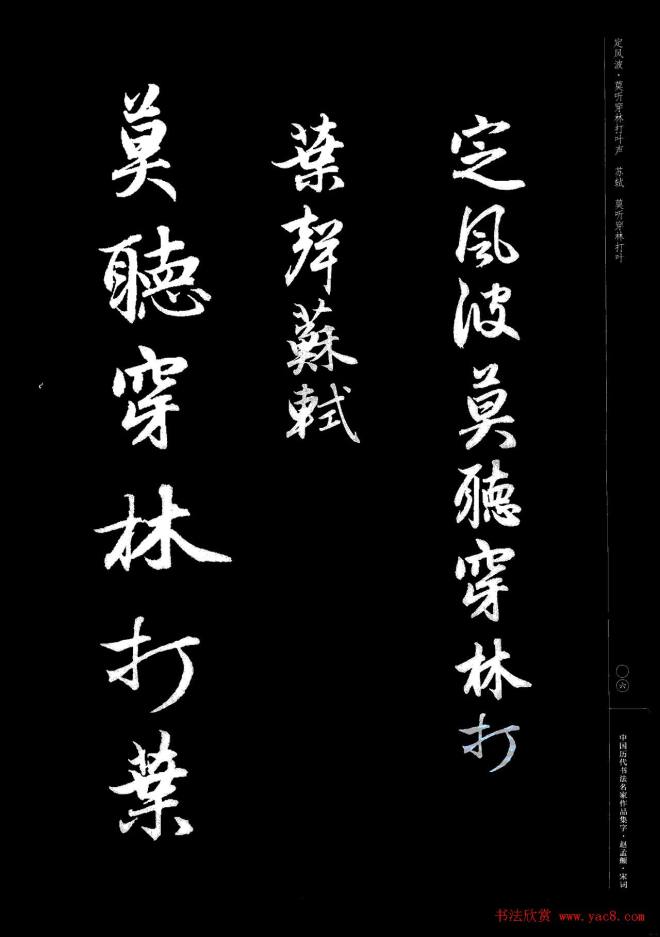 定风波·莫听穿林打叶声　苏轼　莫听穿林打叶
定風波莫聽穿林打
葉聲蘇軾
莫聽穿林打葉
〇六
中国历代书法名家作品集字·赵孟頫·宋词
书法欣赏 www.yac8.com